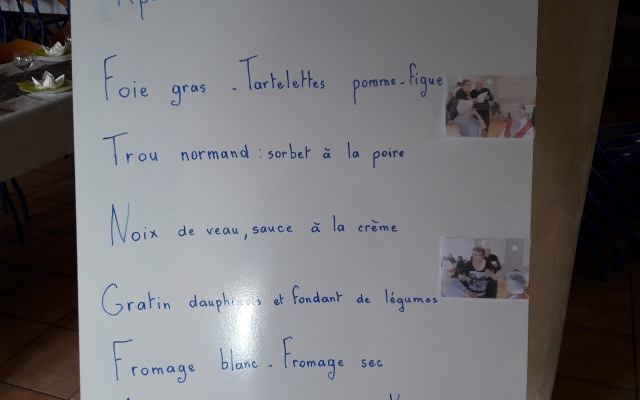 Foie gras - Tartelettes pomme-figue
Trou normand : sorbet à la poire
Noix de veau, sauce à la crème
Gratin dauphinois et fondant de légumes
Fromage blanc - Fromage sec